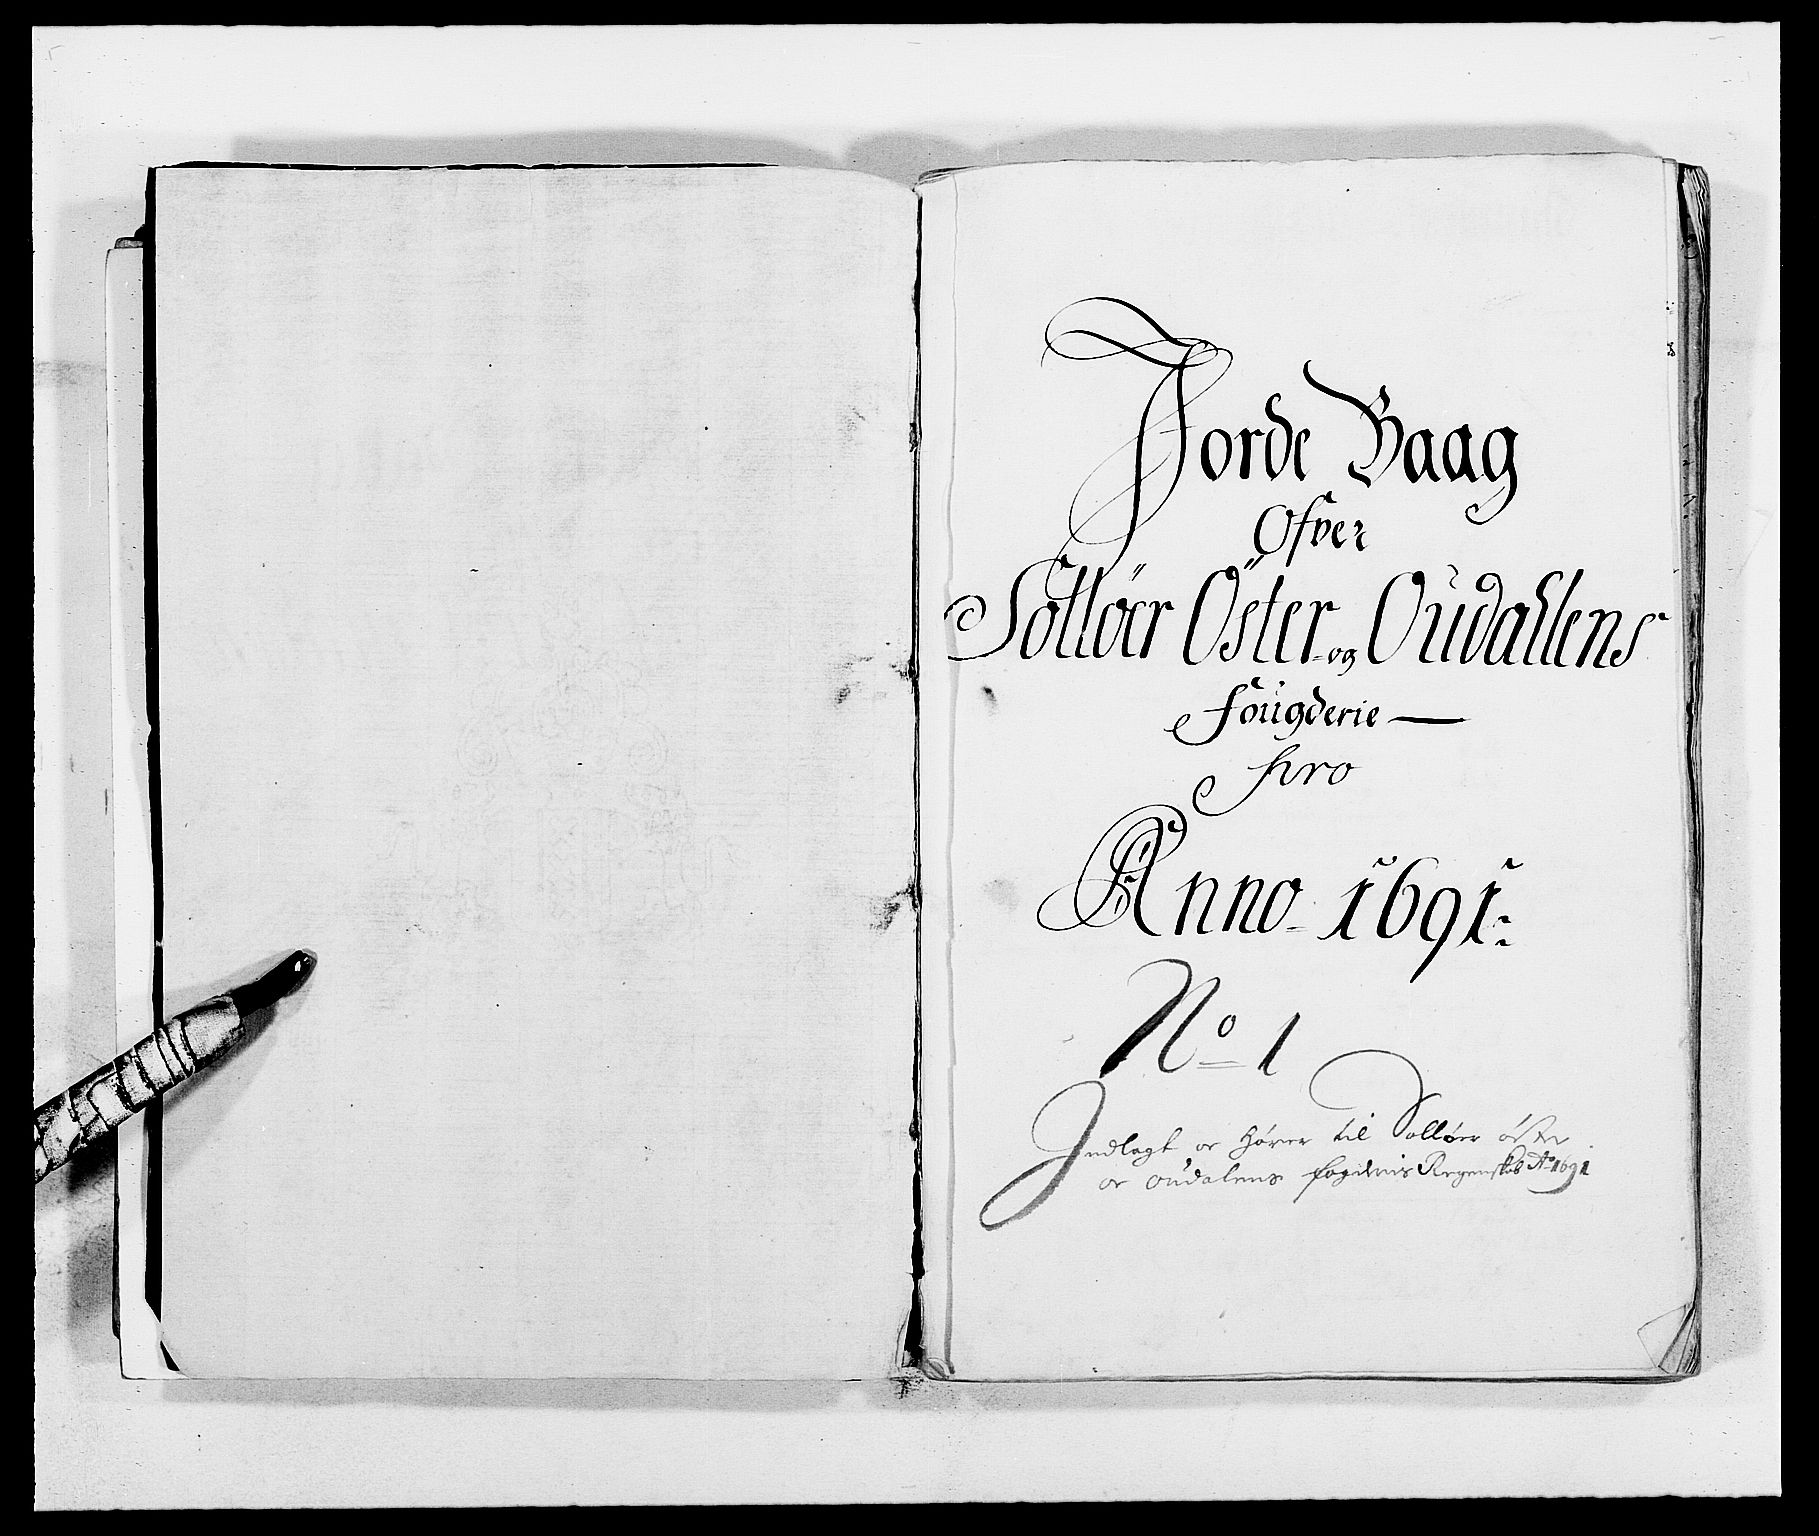 Jorde Baag
Ofver
Solløer Öster- og Oudahlens
Fougderie —
Pro
Anno 1691:
No 1
Indlagt oc Hører til Solløer öster
oc oudalens fogderis Regenskab Ao 1691